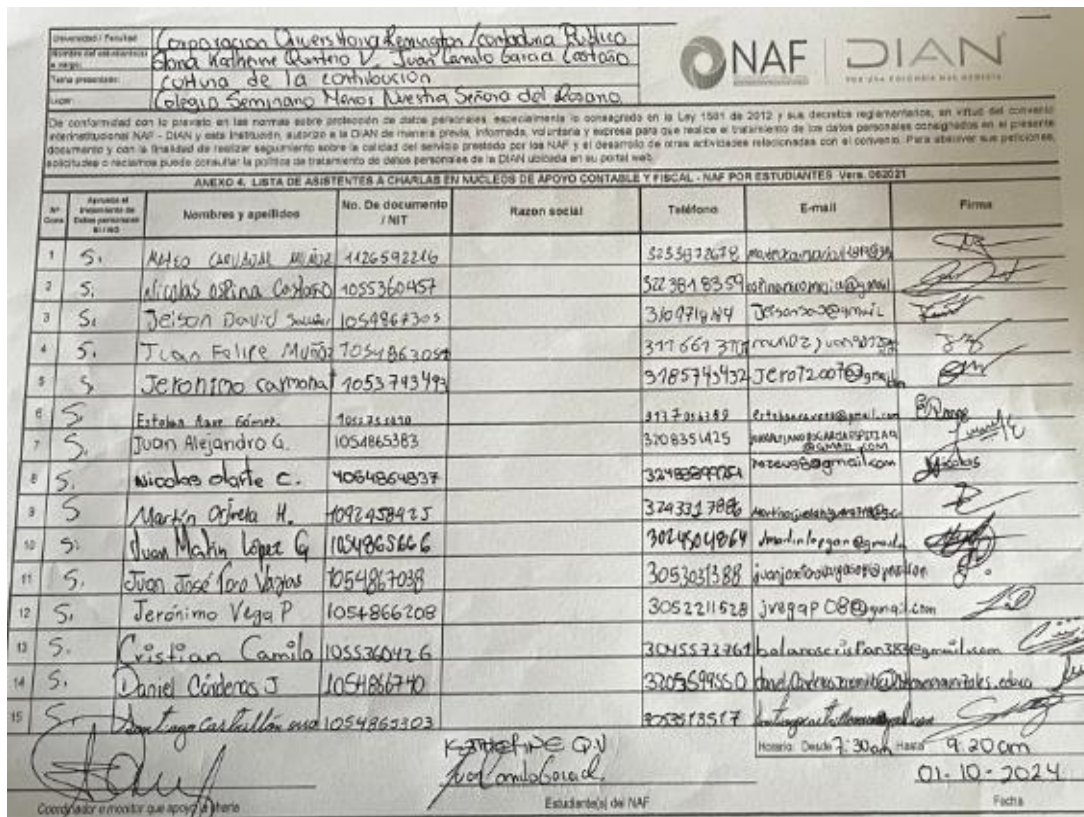 Universidad / Facultad Corporacion Universitaria Remington / contaduria Publica
Nombre del estudiante(s) a cargo: Katherine Quintero V. Juan Camilo Garcia Castaño
Tema presentado: Cultura de la contribución
Lugar: Colegio Seminario Menor Nuestra Señora del Rosario
NAF DIAN
POR UNA COLOMBIA MÁS HONESTA
De conformidad con lo previsto en las normas sobre protección de datos personales, especialmente lo consagrado en la Ley 1581 de 2012 y sus decretos reglamentarios, en virtud del convenio
interinstitucional NAF - DIAN y esta Institución, autorizo a la DIAN de manera previa, informada, voluntaria y expresa para que realice el tratamiento de los datos personales consignados en el presente
documento y con la finalidad de realizar seguimiento sobre la calidad del servicio prestado por los NAF y el desarrollo de otras actividades relacionadas con el convenio. Para absolver sus peticiones,
solicitudes o reclamos puede consultar la política de tratamiento de datos personales de la DIAN ubicada en su portal web.
ANEXO 4. LISTA DE ASISTENTES A CHARLAS EN NUCLEOS DE APOYO CONTABLE Y FISCAL - NAF POR ESTUDIANTES Vers. 062021
Nº Cons Aprueba el tratamiento de Datos personales SI / NO Nombres y apellidos No. De documento / NIT Razon social Teléfono E-mail Firma
1 Si MATEO CARVAJAL MUÑOZ 1126592216
2 Si Nicolas ospina Castaño 1055360457 3223818359
3 Si Jeison David 1054867305
4 Si Juan Felipe Muñoz
5 Si Jeronimo carmona 1053793493 3185743432
6 Si Esteban Gómez.
7 Si Juan Alejandro G. 1054865383 3208351425
8 Si Nicolas olarte C. 1054864837
9 Si Martín H. 1092458425
10 Si Juan Matin López G 1054865666 3024504864
11 Si Juan José Toro Vargas 1054867038 3053031388
12 Si Jerónimo Vega P 1054866208 3052211528 jvegap08@gmail.com
13 Si Cristian Camilo 1055360426 3045573761 bolanoscristian383@gmail.com
14 Si Daniel Cárdenas J 1054866740
15 Si Santiago Castrillón 1054865303 3053513517
Horario: Desde 7:30am Hasta 9:20am
KATHERINE Q.V
Juan Camilo Garcia C.
01-10-2024
Coordinador o monitor que apoyo la charla Estudiante(s) del NAF Fecha